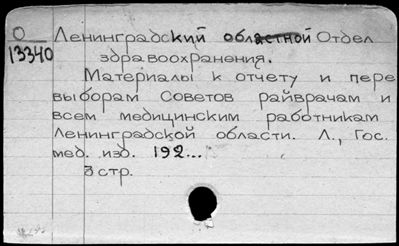 О
13340
Ленинградский областной Отдел
здравоохранения.
Материалы к отчету и пере
выборам Советов райврачам и
всем медицинским работникам
Ленинградской области. Л., Гос.
мед. изд. 192...
3 стр.